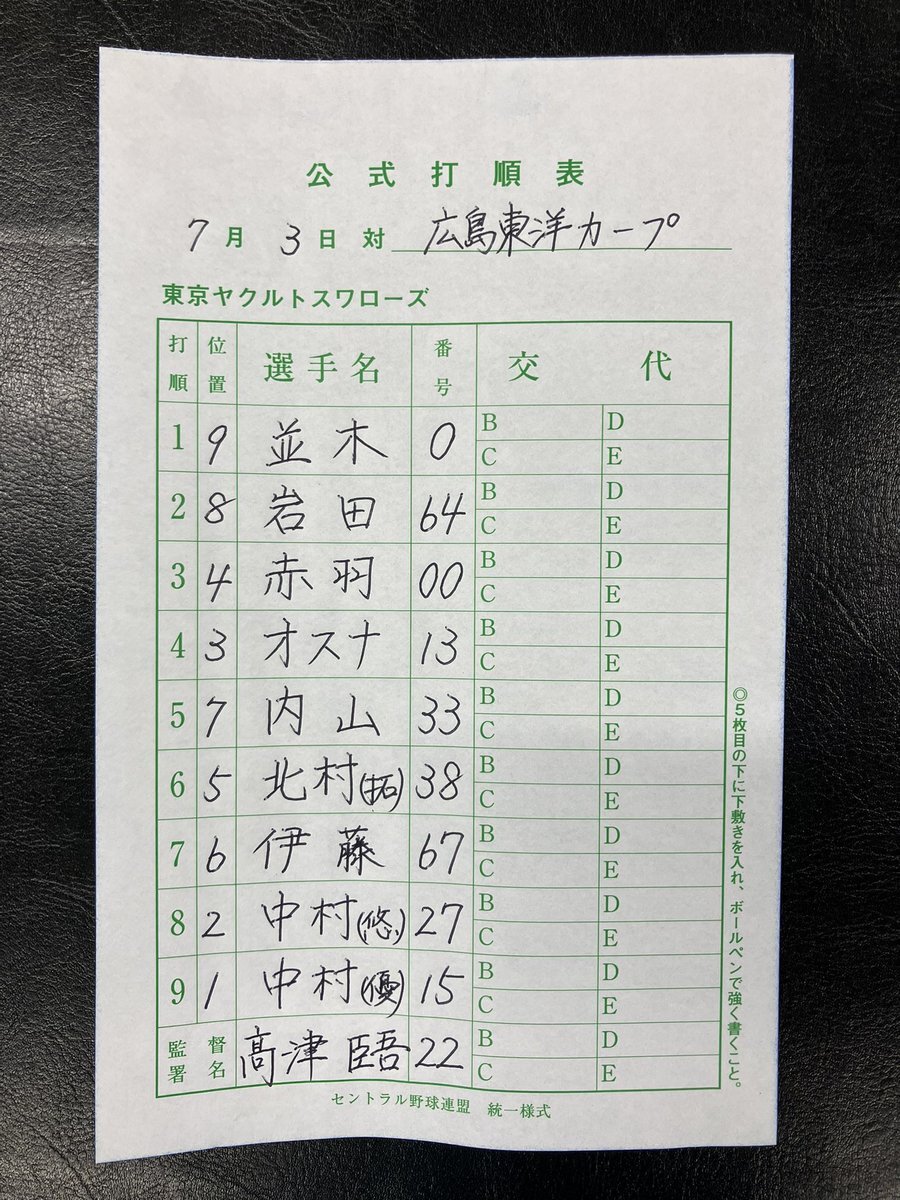 公式打順表
7月 3日 対 広島東洋カープ
東京ヤクルトスワローズ
打順 位置 選手名 番号 交代
1 9 並木 0 B D
C E
2 8 岩田 64 B D
C E
3 4 赤羽 00 B D
C E
4 3 オスナ 13 B D
C E
5 7 内山 33 B D
C E
6 5 北村(拓) 38 B D
C E
7 6 伊藤 67 B D
C E
8 2 中村(悠) 27 B D
C E
9 1 中村(優) 15 B D
C E
監督署名 髙津臣吾 22 B D
C E
セントラル野球連盟 統一様式
◎5枚目の下に下敷きを入れ、ボールペンで強く書くこと。